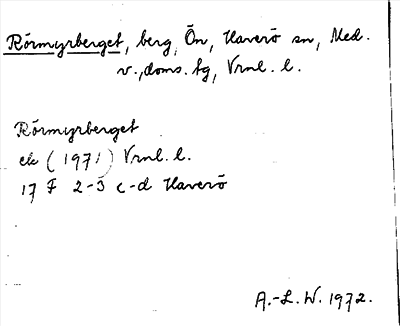 Rörmyrberget, berg, Ön, Haverö sn, Med.
v., doms. fg, Vrnl. l.
Rörmyrberget
ek (1971) Vrnl. l.
17 F 2-3 c-d Haverö
A.-L. W. 1972.